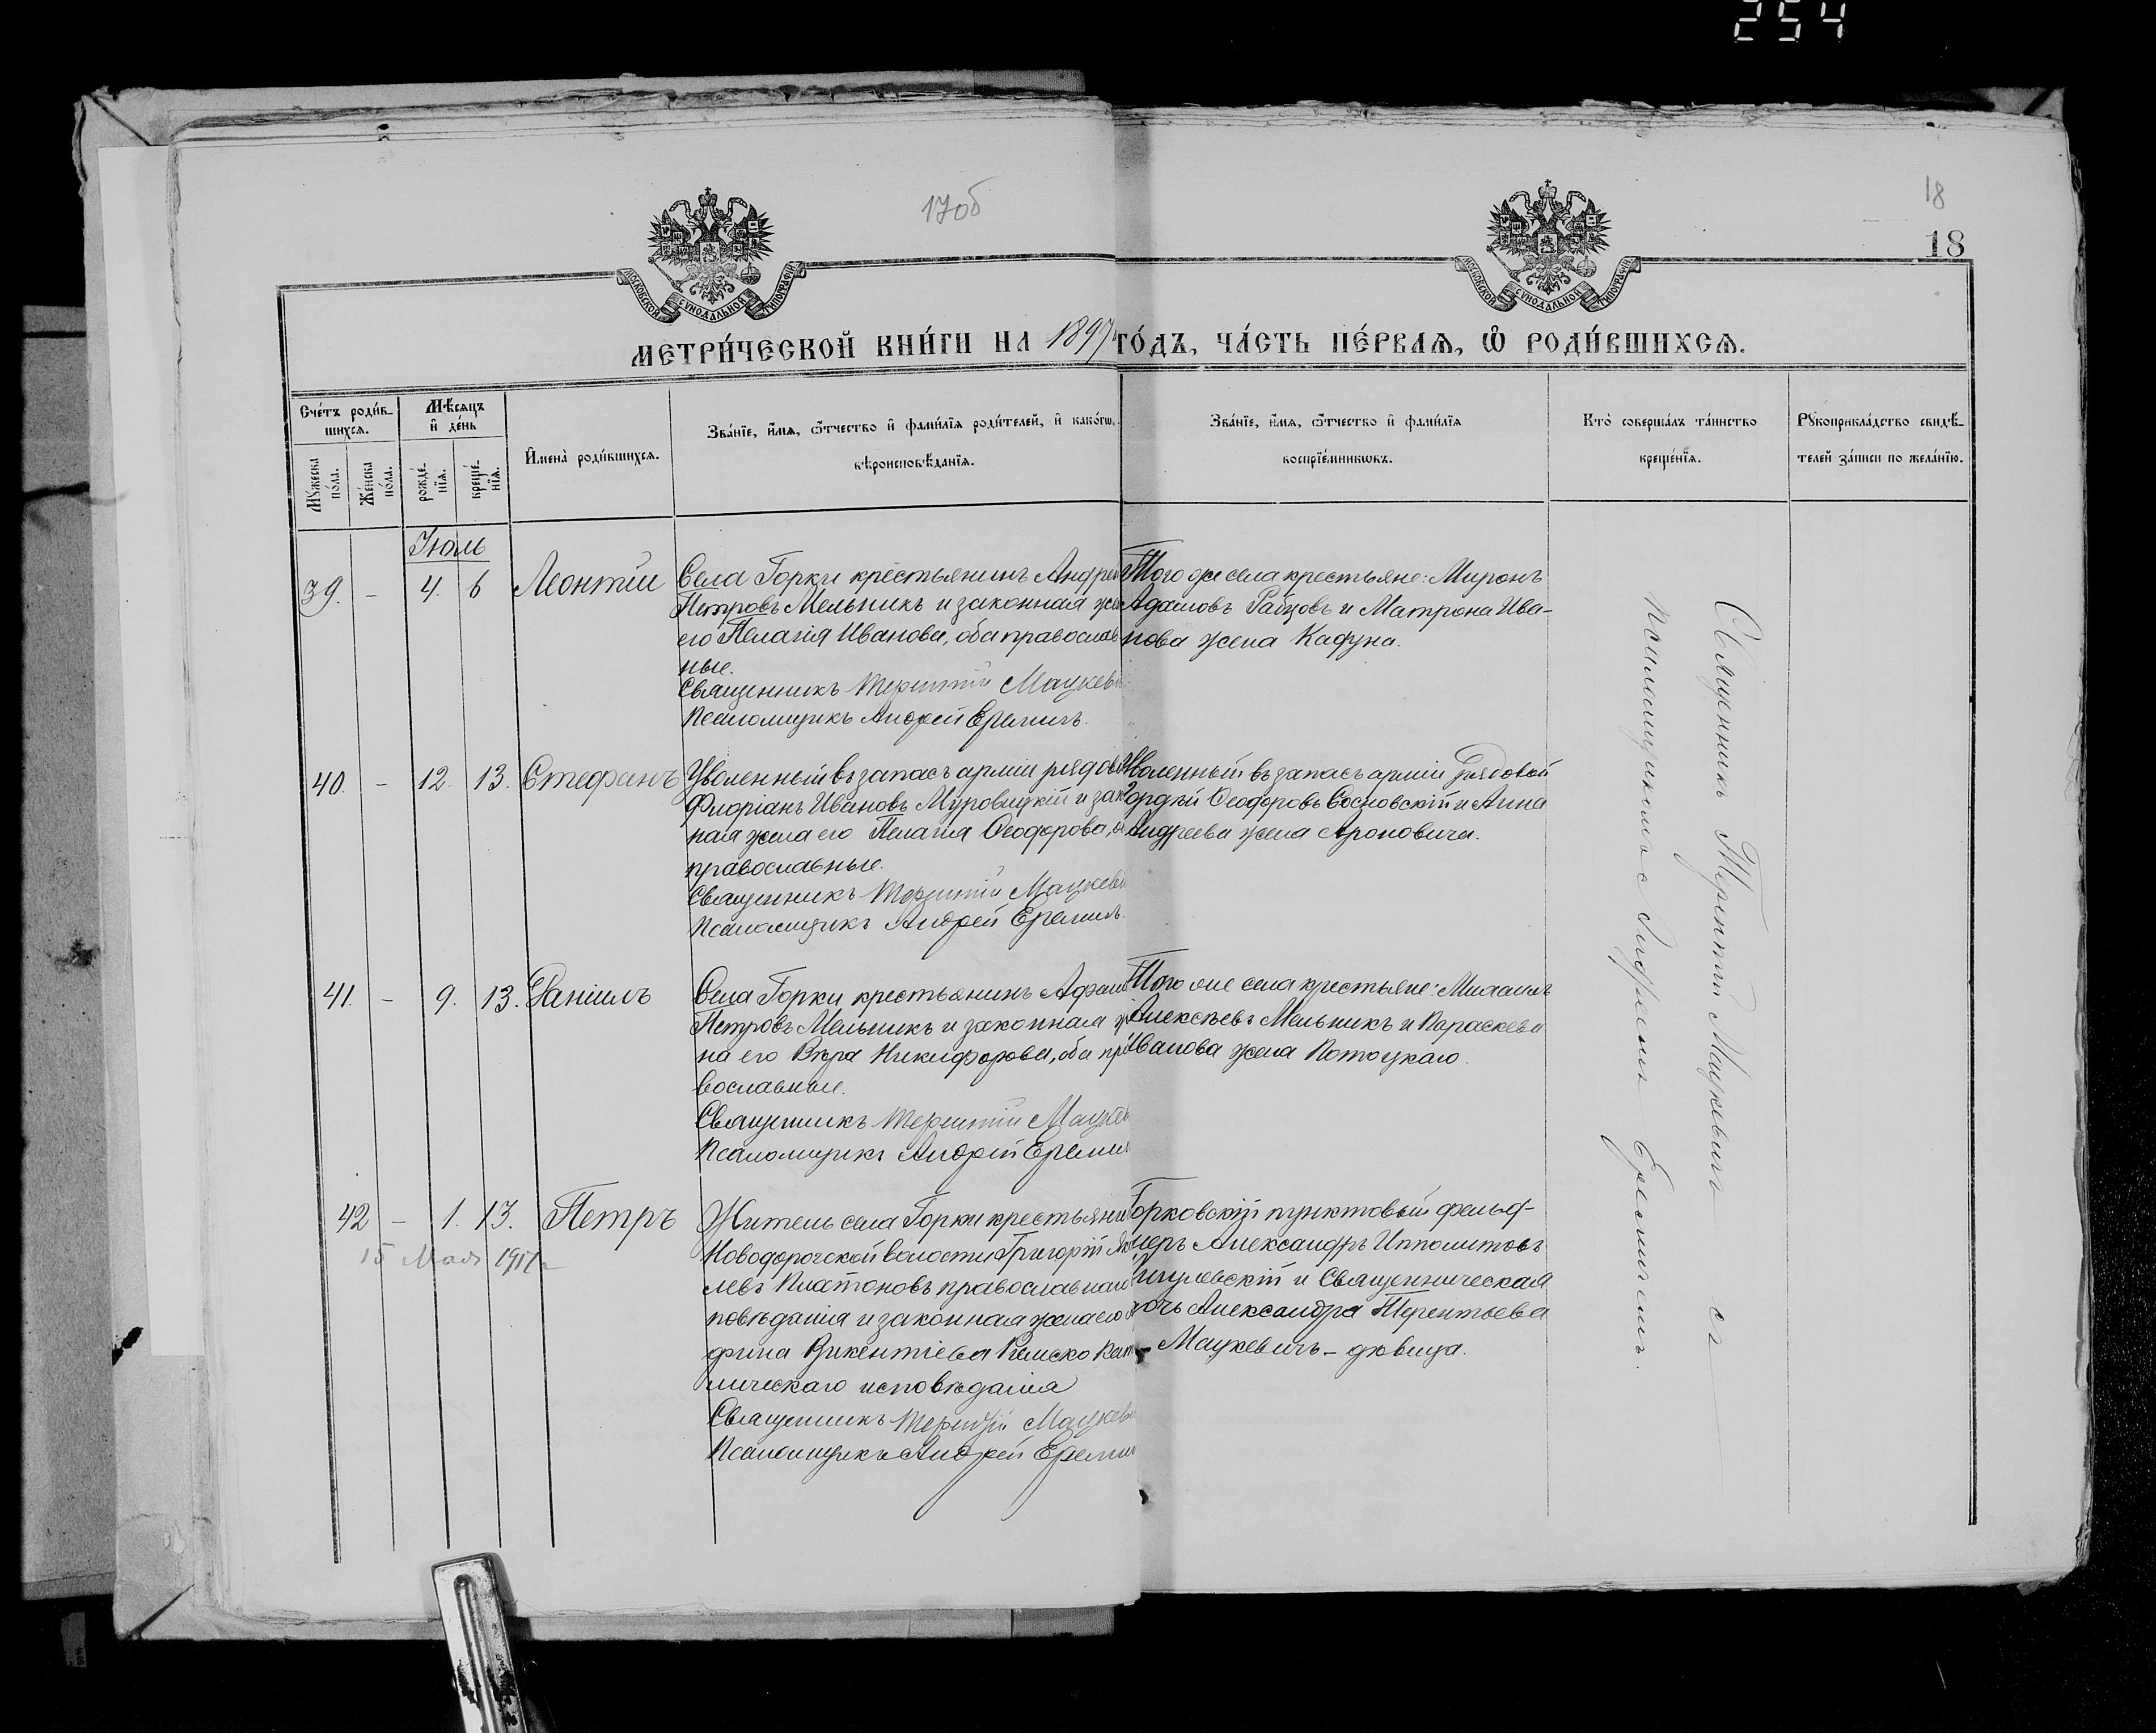 254
17об
18
18
МОСКОВСКОЙ СѴНОДАЛЬНОЙ ТИПОГРАФІИ
МОСКОВСКОЙ СѴНОДАЛЬНОЙ ТИПОГРАФІИ
МЕТРИ́ЧЕСКОЙ КНИ́ГИ НА 1897 ГО́ДЪ, ЧА́СТЬ ПЕ́РВАѦ, Ѡ҆ РОДИ́ВШИХСѦ.
Сче́тъ роди́в-
шихсѧ.
Мѣ́сѧцъ
и҆ де́нь
Мꙋ́жеска
по́ла.
Же́нска
по́ла.
рожде́-
нїѧ.
креще́-
нїѧ.
И҆мена̀ роди́вшихсѧ.
Зва́нїе, и҆́мѧ, ѻ҆́тчество и҆ фами́лїѧ роди́телей, и҆ како́гѡ
вѣроисповѣ́данїѧ.
Зва́нїе, и҆́мѧ, ѻ҆́тчество и҆ фами́лїѧ
воспрїе́мникѡвъ.
Кто̀ соверша́лъ та́инство
креще́нїѧ.
Рꙋкоприкла́дство свидѣ́-
телей за́писи по жела́нїю.
Іюль
39. - 4. 6 Леонтій
Села Горки крестьянинъ Андрей
Петровъ Мельникъ и законная же
его Пелагія Иванова, оба православ
ные.
Священникъ Терентій Мацкеви
Псаломщикъ Андрей Еремичъ.
Того же села крестьяне: Миронъ
Адамовъ Рабцовъ и Матрона Ива-
нова жена Кафуна.
40. - 12. 13. Стефанъ
Уволенный въ запасъ арміи рядовой
Флоріанъ Ивановъ Муровицкій и зак
ная жена его Пелагія Ѳеодорова, о
православные.
Священникъ Терентій Мацкеви
Псаломщикъ Андрей Еремичъ.
Уволенный въ запасъ арміи рядовой
Гордѣй Ѳеодоровъ Сосновскій и Анна
Андреева жена Ароновича.
41. - 9. 13. Даніилъ
Села Горки крестьянинъ Афан
Петровъ Мельникъ и законная же
на его Вѣра Никифорова, оба пра
вославные.
Священникъ Терентій Мацке
Псаломщикъ Андрей Еремич
Того же села крестьяне: Михаилъ
Алексѣевъ Мельникъ и Параскева
Иванова жена Потоцкаго.
42 - 1. 13. Петръ
15 Мая 1917 г
Житель села Горки крестьянин
Новодорогской волости Григорій Як
левъ Платоновъ православнаго
повѣданія и законная жена его
фина Викентіева Римско Кат
лическаго исповѣданія
Священникъ Терентій Мацкеви
Псаломщикъ Андрей Еремич
Горковскій пунктовый фельд-
шеръ Александръ Ипполитовъ
и Священническая
дочь Александра Терентьева
Мацкевичъ - дѣвица.
Священникъ Терентій Мацкевичъ съ
псаломщикомъ Андреемъ Еремичемъ.